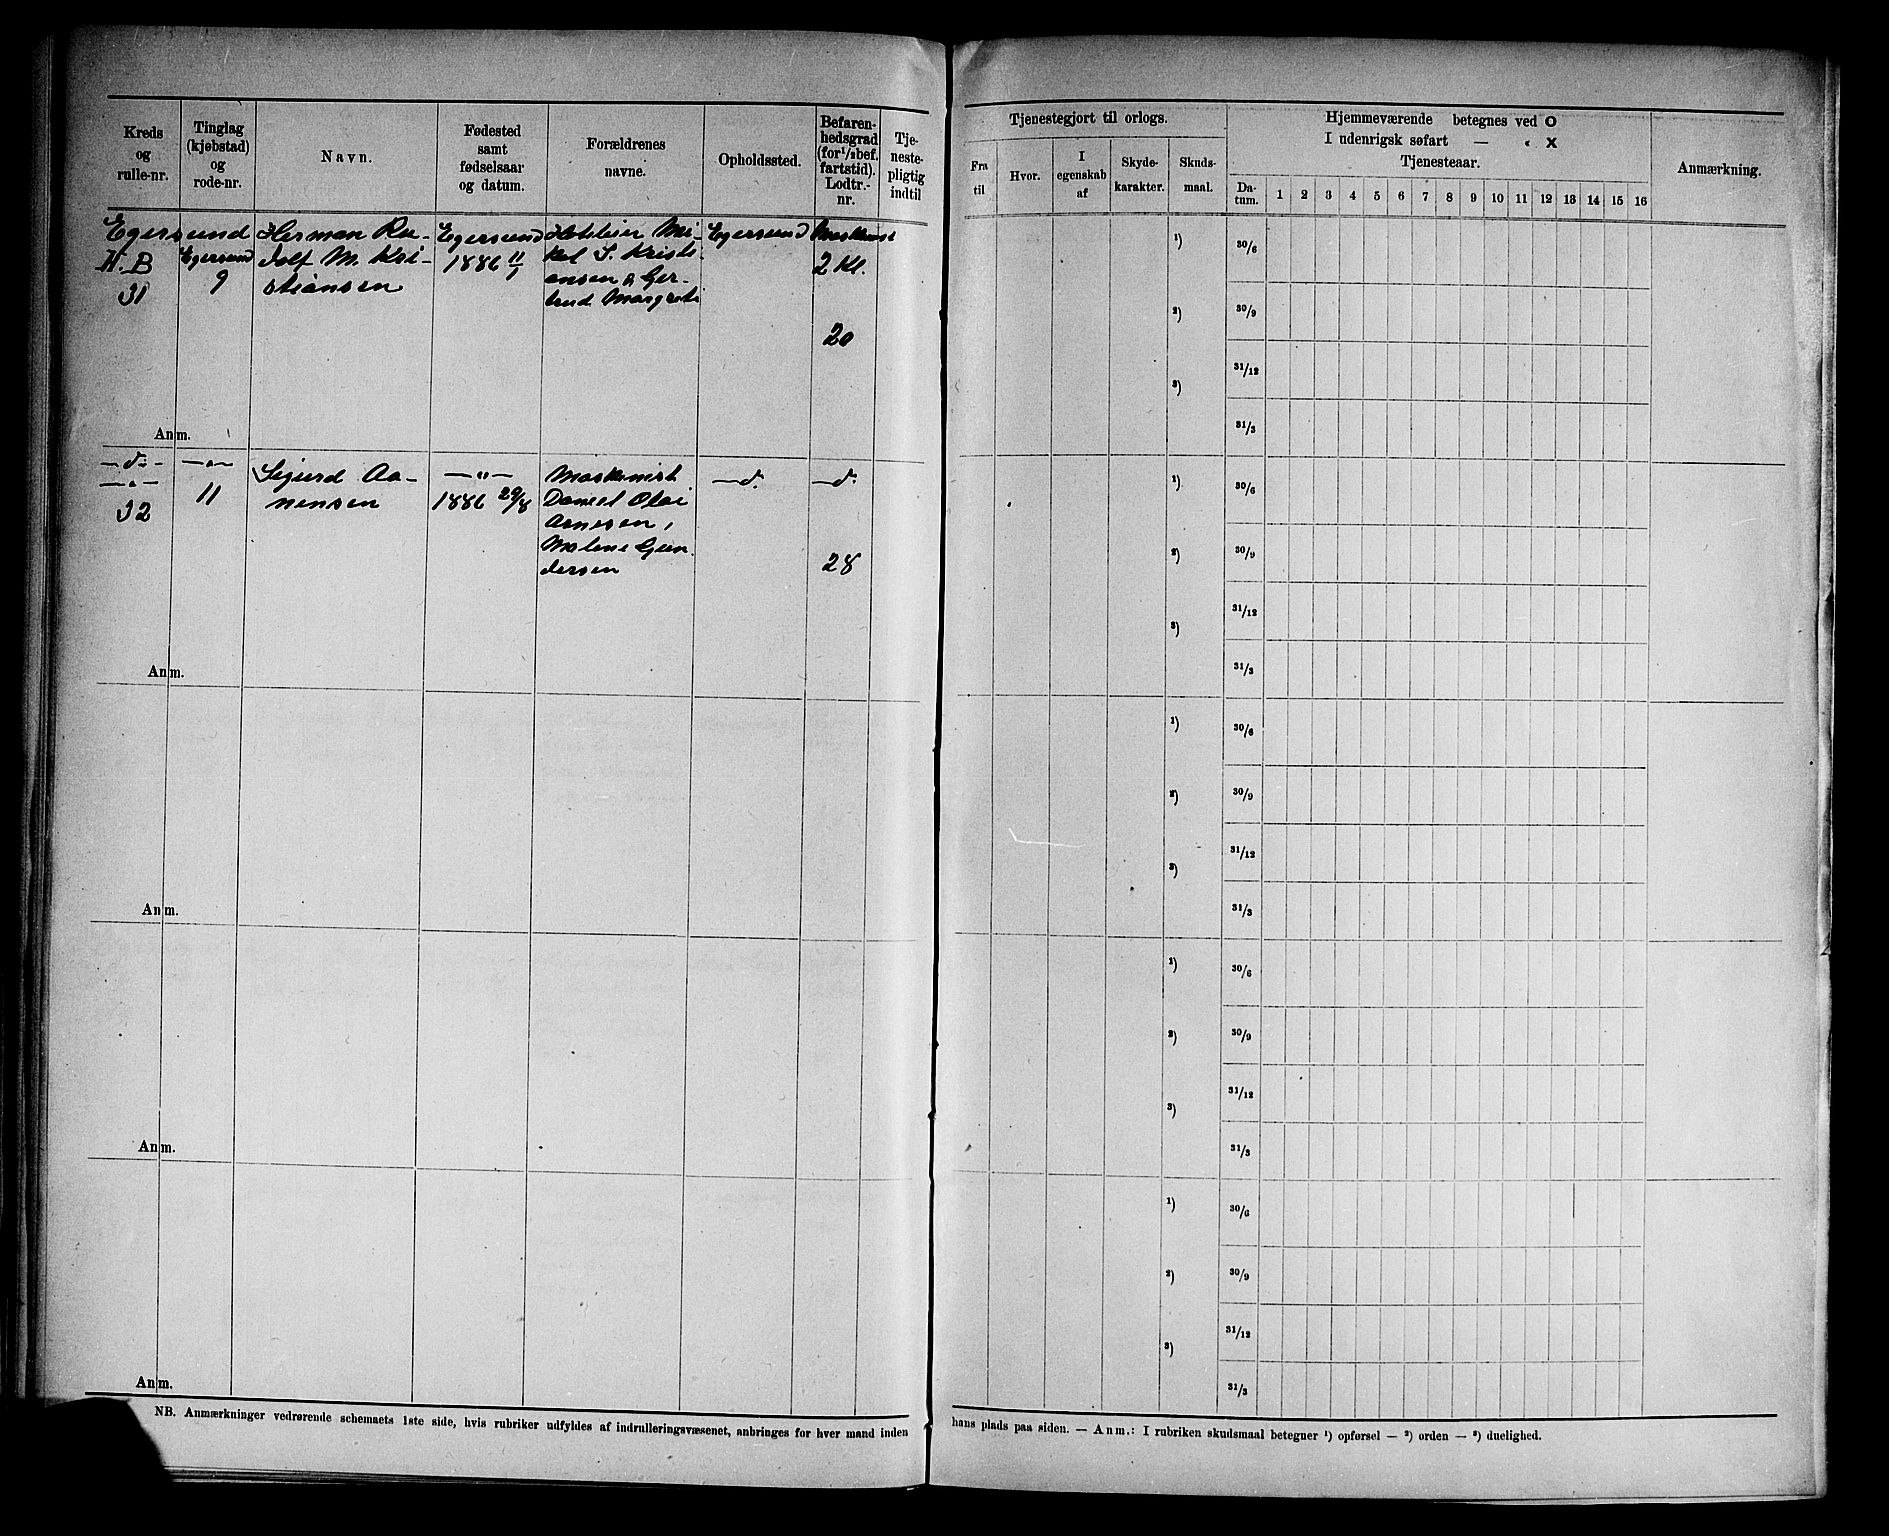 Kreds
og
rulle-nr.
Tinglag
(kjøbstad)
og
rode-nr.
Navn.
Fødested
samt
fødselsaar
og datum.
Forældrenes
navne.
Opholdssted.
Befaren-
hedsgrad
(for 1/1 bef.
fartstid).
Lodtr.-
nr.
Tje-
neste-
pligtig
indtil
Egersund
H. B
31
Egersund
9
Herman Ru-
dolf M. Kri-
stiansen
Egersund
1886 11/1
Hoteleier Mi-
kal S. Kristi-
ansen & Ger-
trud Margrete
Egersund
Maskinist
2 Kl.
20
Anm.
—d.—
—"—
32
—"—
11
Sigurd Aa-
nensen
—"—
1886 29/8
Maskinist
Daniel Olai
Aanesen,
Malene Gun-
dersen
—d.
—d.
28
Anm.
Anm.
Anm.
Anm.
NB. Anmærkninger vedrørende schemaets 1ste side, hvis rubriker udfyldes af indrulleringsvæsenet, anbringes for hver mand inden
Tjenestegjort til orlogs.
Fra
til
Hvor.
I
egenskab
af
Skyde-
karakter.
Skuds-
maal.
Hjemmeværende betegnes ved O
I udenrigsk søfart — " X
Tjenesteaar.
Da-
tum.
1 2 3 4 5 6 7 8 9 10 11 12 13 14 15 16
Anmærkning.
1)
30/6
2)
30/9
31/12
3)
31/3
1)
30/6
2)
30/9
31/12
3)
31/3
1)
30/6
2)
30/9
31/12
3)
31/3
1)
30/6
2)
30/9
31/12
3)
31/3
1)
30/6
2)
30/9
31/12
3)
31/3
hans plads paa siden. — Anm.: I rubriken skudsmaal betegner 1) opførsel — 2) orden — 3) duelighed.